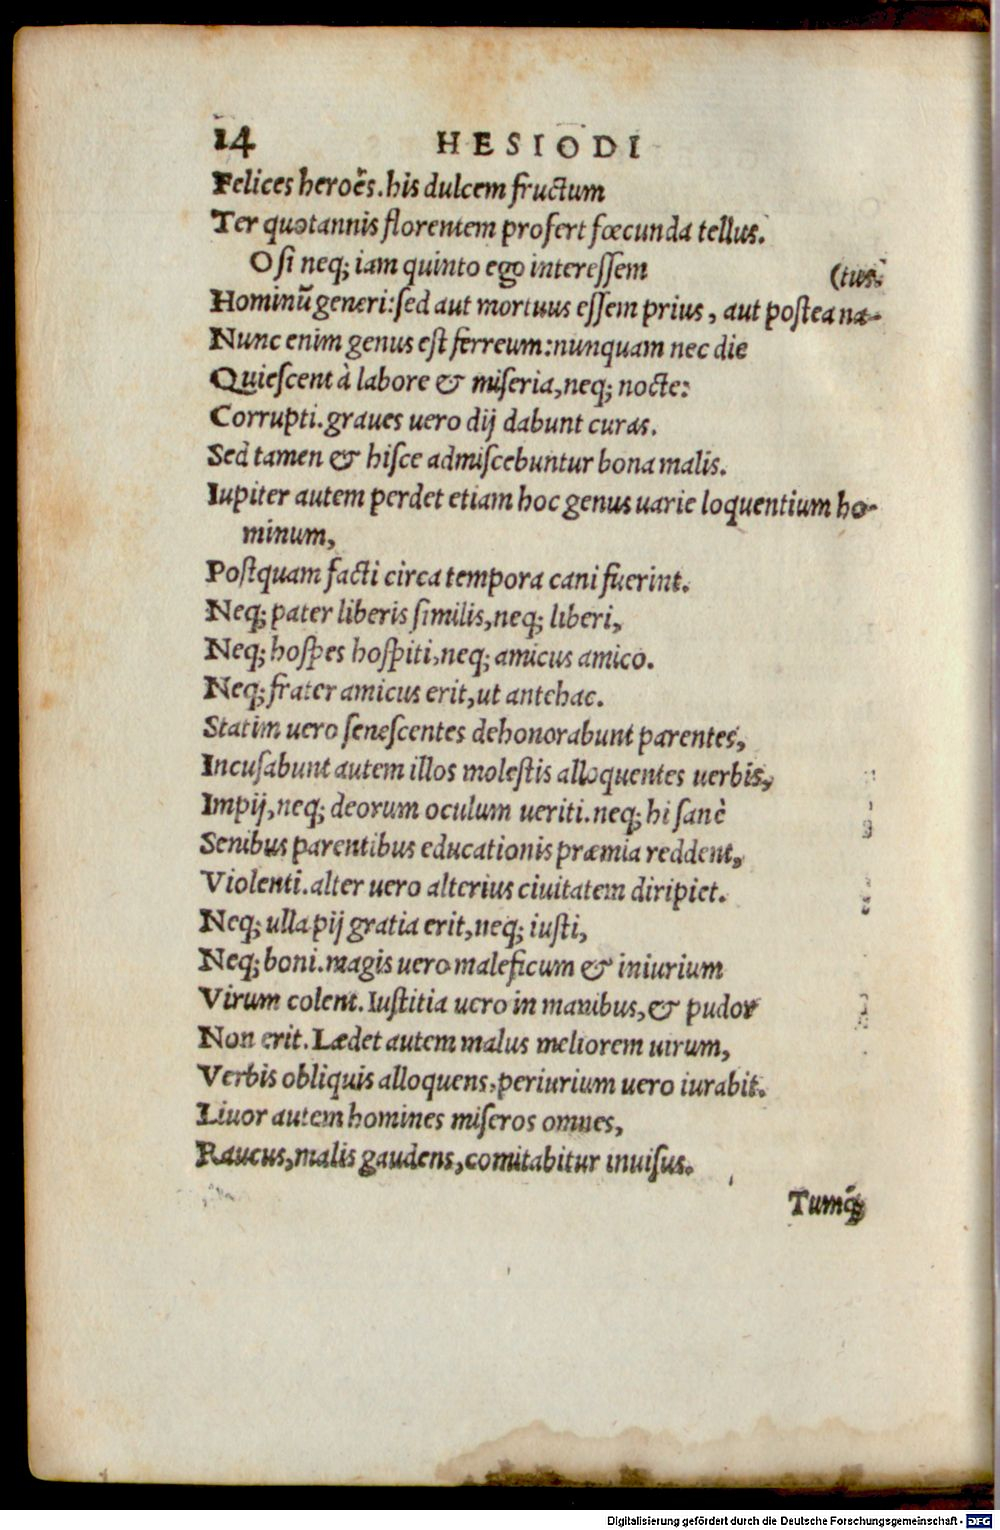 14 HESIODI
Felices heroẽs. his dulcem fructum
Ter quotannis florentem profert fœcunda tellus.
O si neq; iam quinto ego interessem
(tus.
Hominũ generi: sed aut mortuus essem prius, aut postea na-
Nunc enim genus est ferreum: nunquam nec die
Quiescent à labore & miseria, neq; nocte:
Corrupti. graues uero dij dabunt curas.
Sed tamen & hisce admiscebuntur bona malis.
Iupiter autem perdet etiam hoc genus uarie loquentium ho-
minum,
Postquam facti circa tempora cani fuerint.
Neq; pater liberis similis, neq; liberi,
Neq; hospes hospiti, neq; amicus amico.
Neq; frater amicus erit, ut antehac.
Statim uero senescentes dehonorabunt parentes,
Incusabunt autem illos molestis alloquentes uerbis,
Impij, neq; deorum oculum ueriti. neq; hi sanè
Senibus parentibus educationis præmia reddent,
Violenti. alter uero alterius ciuitatem diripiet.
Neq; ulla pij gratia erit, neq; iusti,
Neq; boni. magis uero maleficum & iniurium
Virum colent. Iustitia uero in manibus, & pudor
Non erit. Lædet autem malus meliorem uirum,
Verbis obliquis alloquens, periurium uero iurabit.
Liuor autem homines miseros omnes,
Raucus, malis gaudens, comitabitur inuisus.
Tumq́;
Digitalisierung gefördert durch die Deutsche Forschungsgemeinschaft - DFG